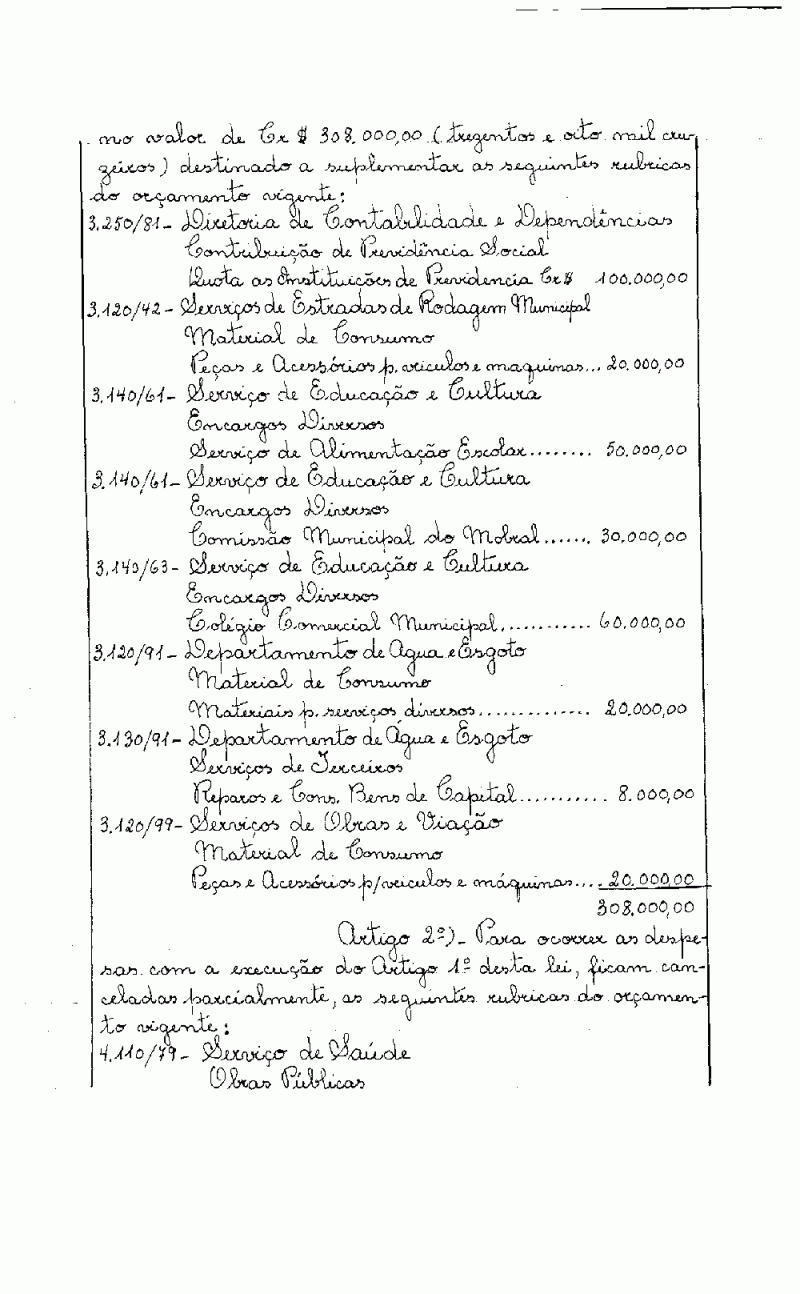 no valor de Cr$ 308.000,00 (trezentos e oito mil cru-
zeiros) destinado a suplementar as seguintes rubricas
do orçamento vigente:
3.250/81 - Diretoria de Contabilidade e Dependências
Contribuição de Previdência Social
Quota as Instituições de Previdencia Cr$ 100.000,00
3.120/42 - Serviços de Estradas de Rodagem Municipal
Material de Consumo
Peças e Acessórios p. veiculos e maquinas... 20.000,00
3.140/61 - Serviço de Educação e Cultura
Encargos Diversos
Serviço de Alimentação Escolar........ 50.000,00
3.140/61 - Serviço de Educação e Cultura
Encargos Diversos
Comissão Municipal do Mobral...... 30.000,00
3.140/63 - Serviço de Educação e Cultura
Encargos Diversos
Colégio Comercial Municipal............ 60.000,00
3.120/91 - Departamento de Agua e Esgoto
Material de Consumo
Materiais p. serviços diversos.............. 20.000,00
3.130/91 - Departamento de Água e Esgoto
Serviços de Terceiros
Reparos e Cons. Bens de Capital........... 8.000,00
3.120/99 - Serviços de Obras e Viação
Material de Consumo
Peças e Acessórios p/veiculos e máquinas.... 20.000,00
308.000,00
Artigo 2º) - Para ocorrer as despe-
sas com a execução do Artigo 1º desta lei, ficam can-
celadas parcialmente, as seguintes rubricas do orçamen-
to vigente:
4.110/79 - Serviço de Saúde
Obras Públicas